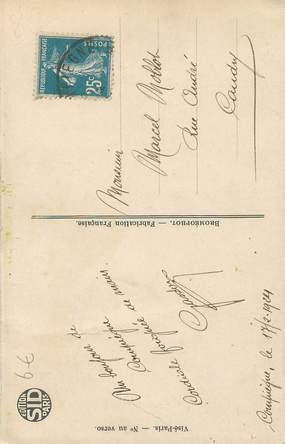 RÉPUBLIQUE FRANÇAISE
POSTES
25c
Monsieur
Marcel Mollot
Rue André
Caudry
BROMÉOPHOT. — Fabrication Française.
Compiègne, le 17/2 1924
Un bonjour de
Compiègne
Cordiale poignée de mains
EDITION
SID
PARIS
Visé-Paris. — Nº au verso.
6 €